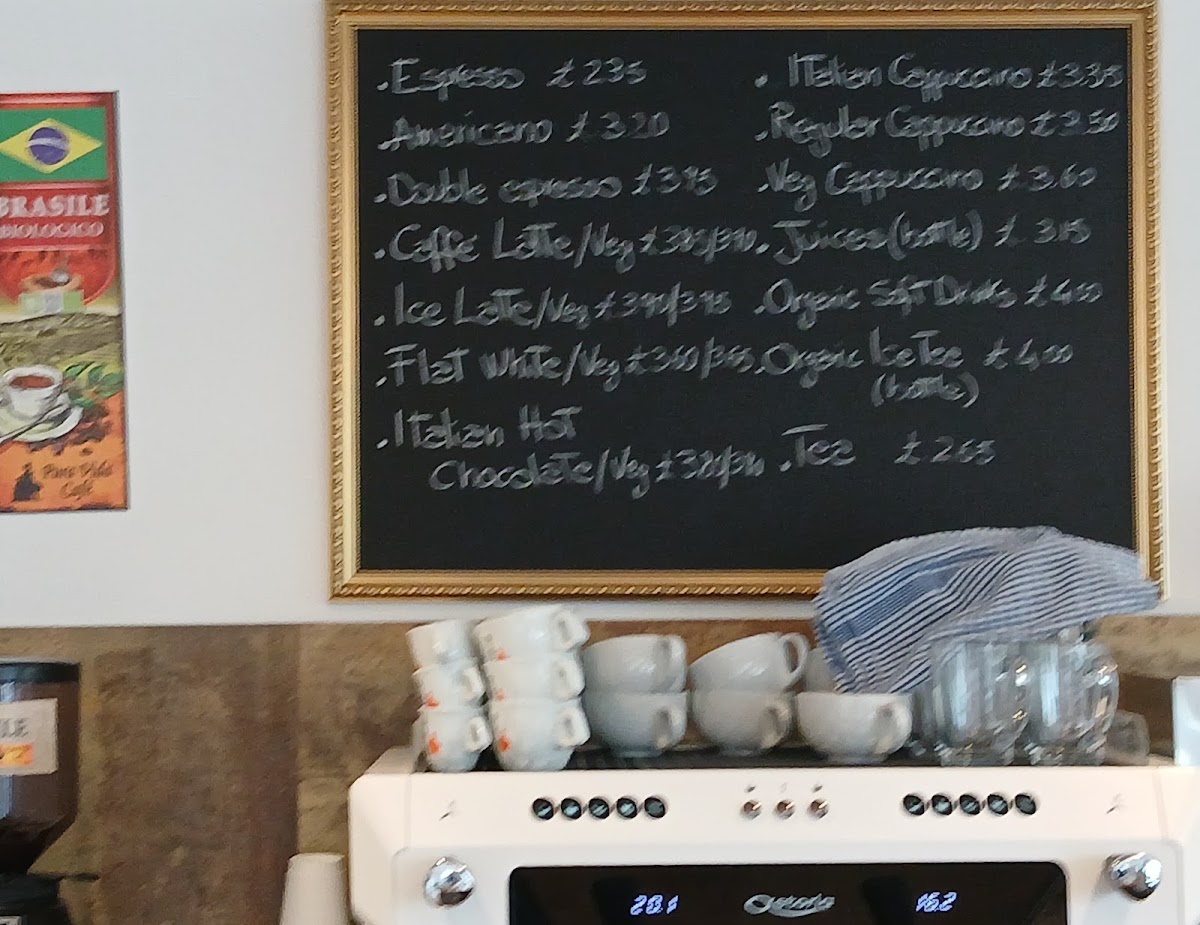 BRASILE
BIOLOGICO
. Espresso £ 235
. Americano £ 3.20
. Double espresso
. Caffè Latte/Veg
. Ice Latte/Veg £ 390/395
. Flat White/Veg
. Italian Hot
Chocolate/Veg
. Italian Cappuccino £3.35
. Regular Cappuccino £3.50
. Veg Cappuccino £3.60
. Juices (bottle) £
. Organic Soft Drinks £4.00
. Organic Ice Tea £4,00
(bottle)
. Tea £ 265
Café
20.1
16.2